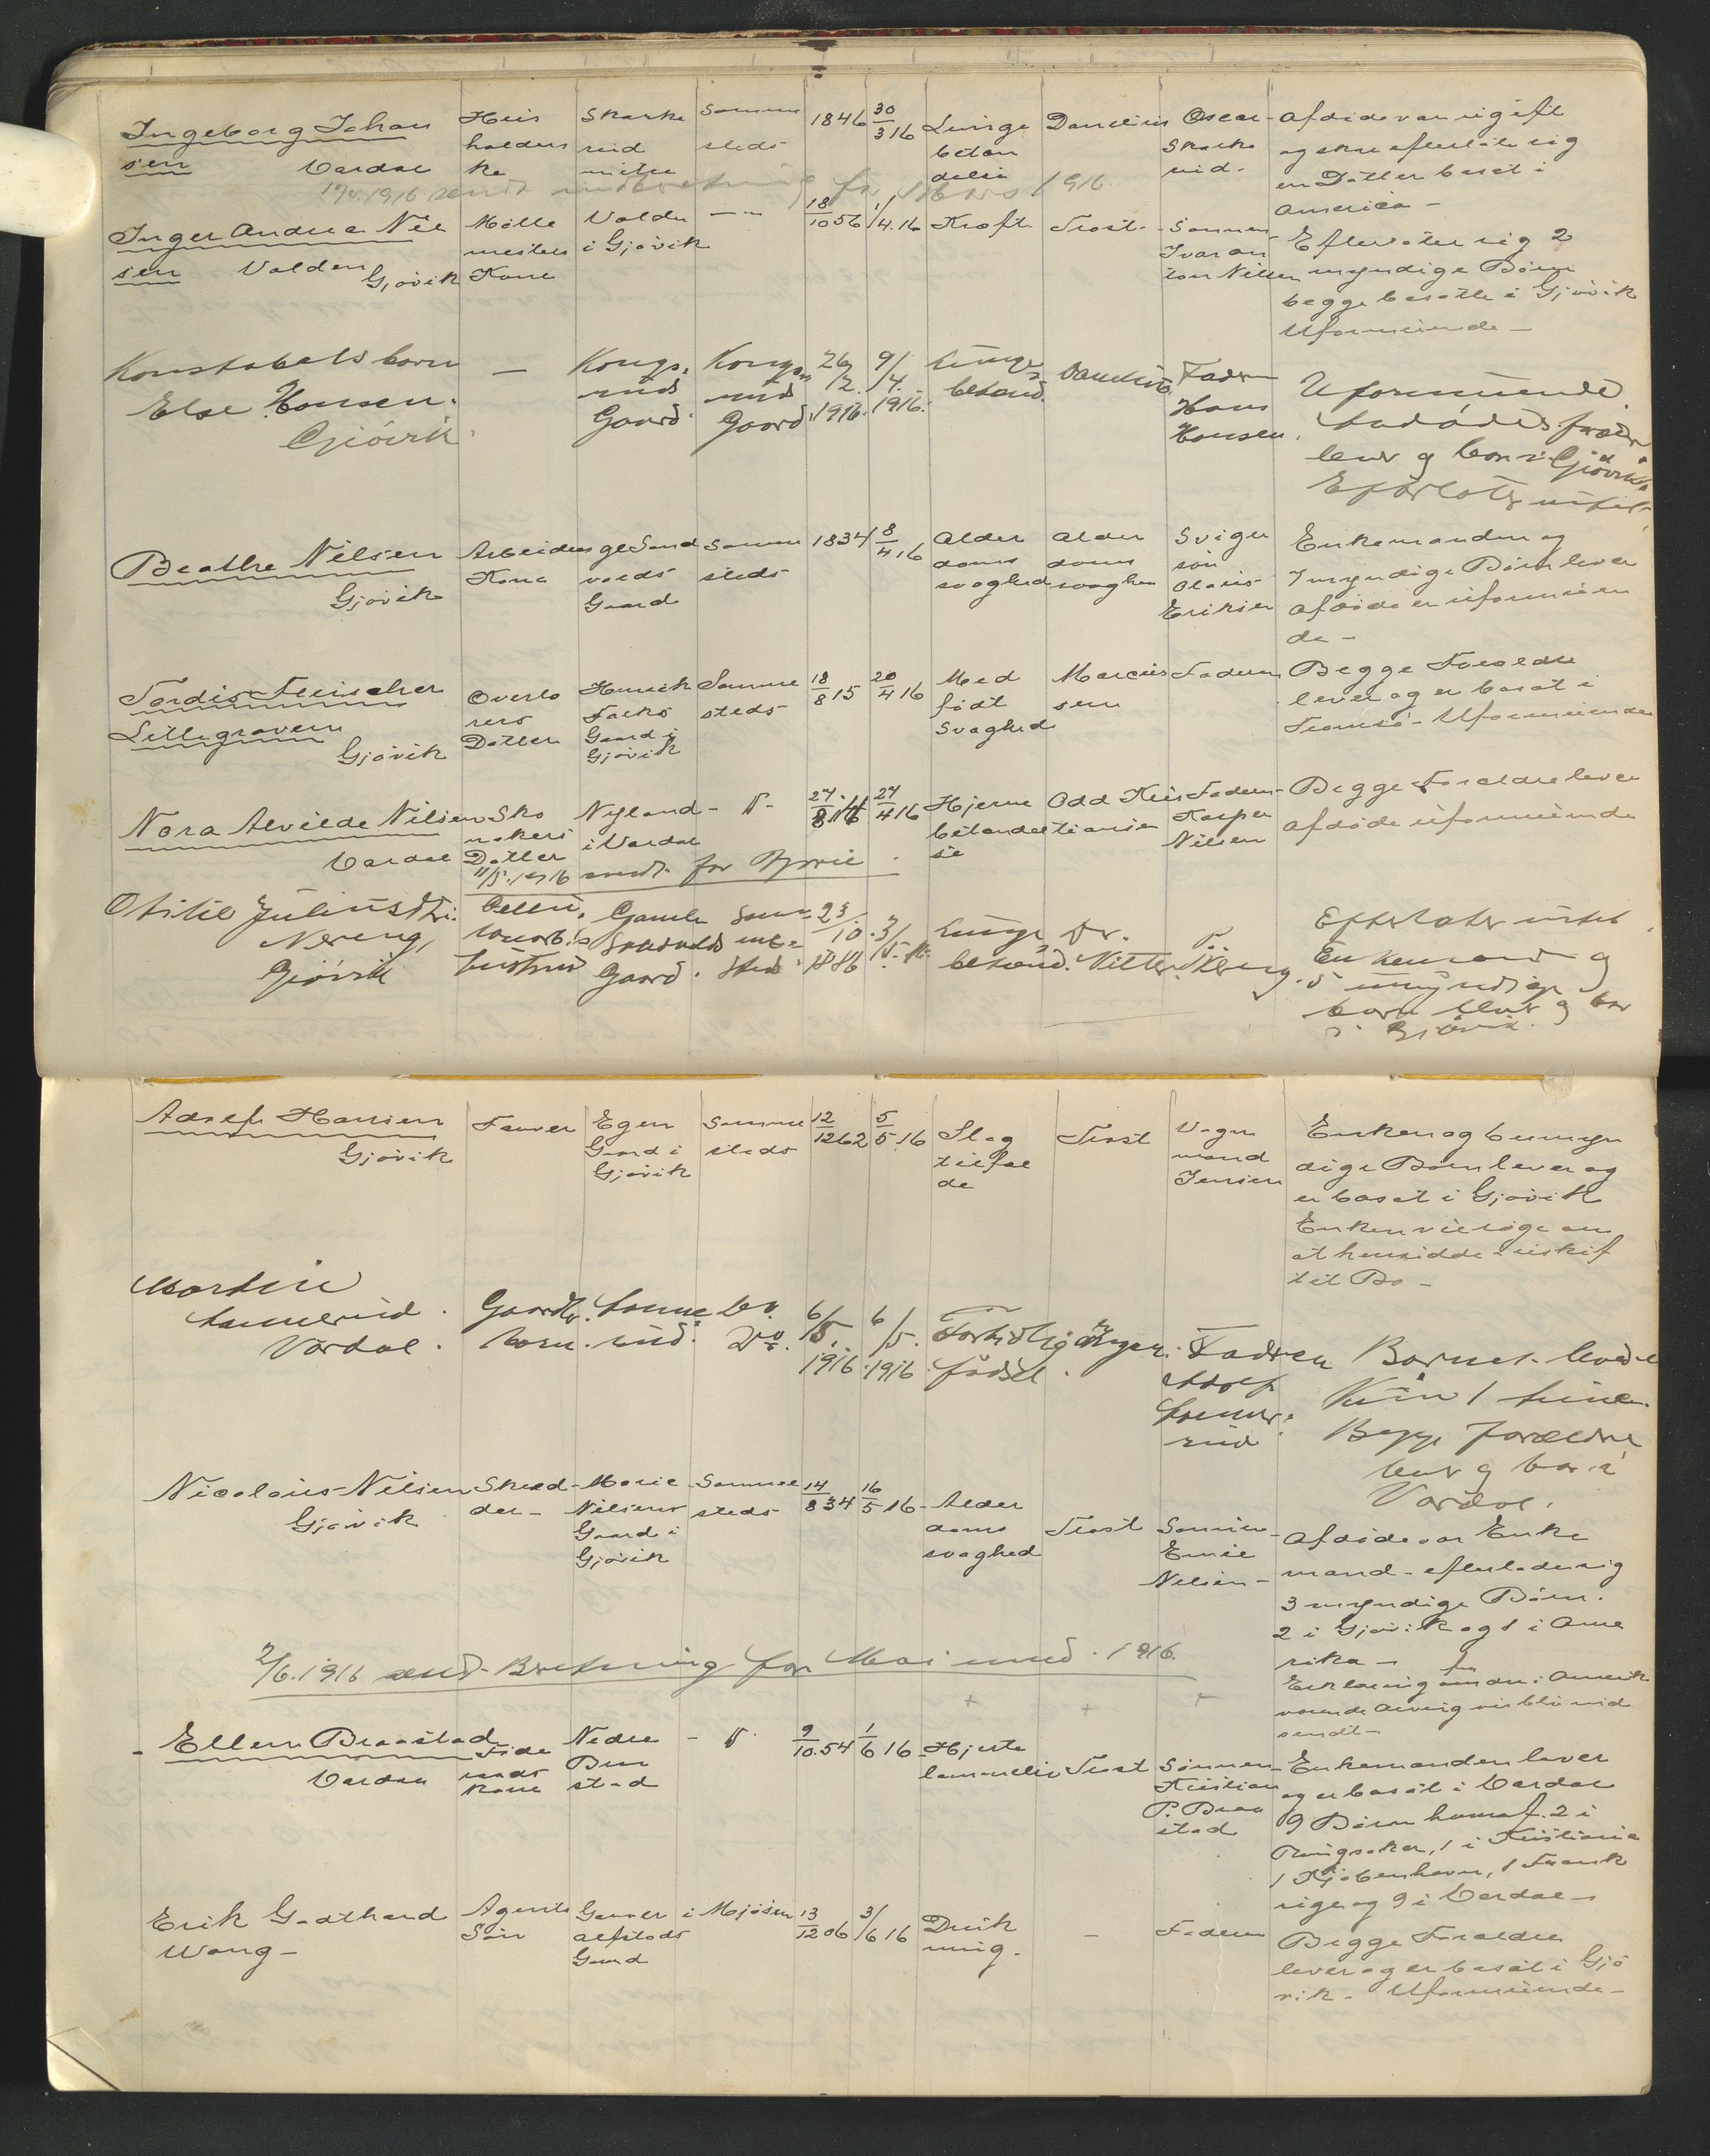 Ingeborg Johan
sen Vardal
Huus
holders
ke
Skarke
rud
Samme
steds
1846
30/3 16
Lunge
beten
delse
Danelius
Oscar
Skarke
rud.
Afdøde var ugift
og skal efterlate sig
en Datter bosat i
America -
17/4. 1916 sendt indberetning for Mars 1916
Inger Andrea Niel
sen Volden
Gjøvik
Mølle
mesters
Kone
Volden
i Gjøvik
18/10 56
1/4. 16
Kræft
Trost.
Sønnen
Ivar An
ton Nilsen
Efterlater sig 2
myndige Børn
begge bosatte i Gjøvik
Uformuende -
Konstabelsbarn
Else Hansen.
Gjøvik.
-
Kongs-
rud
Gaard.
Kongs-
rud
Gaard.
26/2.
1916.
9/4.
1916.
Lunge
betænd.
Danelius
Fadren
Hans
Hansen.
Uformuende.
Avdødes foreldre
lever og bor i Gjøvik.
Efterlot intet.
Beathe Nilsen
Gjøvik
Arbeiders
Kone
Gl Sand
volds
Gaard
Samme
steds
1834
8/4 16
Alder
doms
svaghed
Alder
doms
svaghe
Sviger
søn
Olaus
Eriksen
Enkemanden og
7 myndige Børn lever
Afdøde er uformuen
de -
Tordis Fleischer
Lillegraven
Gjøvik
Overlæ
rers
Datter
Henrik
Falks
Gaard i
Gjøvik
Samme
steds
18/8 15
20/4 16
Med
født
Svaghed
Marcus
sen
Faderen
Begge Foreldre
lever og er bosat i
Tromsø - Uformuende
Nora Alvilde Nilsen
Vardal
Sko
makers
Datter
Nyland
i Vardal
- " -
27/4 16
Hjerne
betændel
se
Odd Kris
tiansen
Faderen
Kasper
Nilsen
Begge Foreldre lever
afdøde uformuende
11/5. 1916 sendt for April
Otilie Julinsdtr.
Nereng,
Gjøvik
hustru
Gamle
Sandvolds
Gaard.
Samme
sted
23/10.
1886
3/5. 16.
Lunge
betænd.
Dr.
P.
Nereng.
Efterlater intet.
Enkemand og
5 umyndige
barn lever og bor
i Gjøvik.
Adolf Hansen
Gjøvik
Farver
Egen
Gaard i
Gjøvik
Samme
steds
12/12 62
5/5 16
Slag
tilfæl
de
Trost
Vogn
mand
Jensen
Enken og 6 umyn
dige Børn lever og
er bosat i Gjøvik
Enken vil søge om
at hensidde i uskif
tet Bo -
Martin
Lannerud.
Vardal.
Gaardbr.
barn.
rud.
6/5.
1916.
6/5.
1916.
Fortidlig
fødsel.
Fadren
Adolf
Barnet levde
kun 1 time.
Begge foreldre
lever og bor i
Vardal.
Nicolaus Nilsen
Gjøvik
Skred
der -
Marie
Nilsens
Gaard i
Gjøvik
Samme
steds
14/8 34
16/5 16
Alder
doms
svaghed
Trost
Sønnen
Emil
Nilsen -
Afdøde var Enke
mand - efterlader sig
3 myndige Børn.
2 i Gjøvik og 1 i Ame
rika -
Erklæring fra den i Amerika
værende Arving vil bli ind
sendt -
2/6. 1916 send. Bretning for Mai mnd. 1916.
- Ellen Braastad
Vardal
Gaard
mands
Kone
Nedre
Braa
stad
- " -
9/10. 54
1/6 16
Hjerte
lammelse
Trost
Sønnen
Kristian
P. Braa
stad
Enkemanden lever
og er bosat i Vardal
9 Børn hvoraf 2 i
Ringsaker, 1 i Kristiania
1 Kjøbenhavn, 1 Frank
rige og 9 i Vardal -
Erik Godthard
Wang -
Agents
Søn
Garver
alfstads
Gaard
i Mjøsen
13/12 06
3/6 16
Druk
ning.
-
Faderen
Begge Foreldre
lever og er bosat i Gjø
vik - Uformuende -